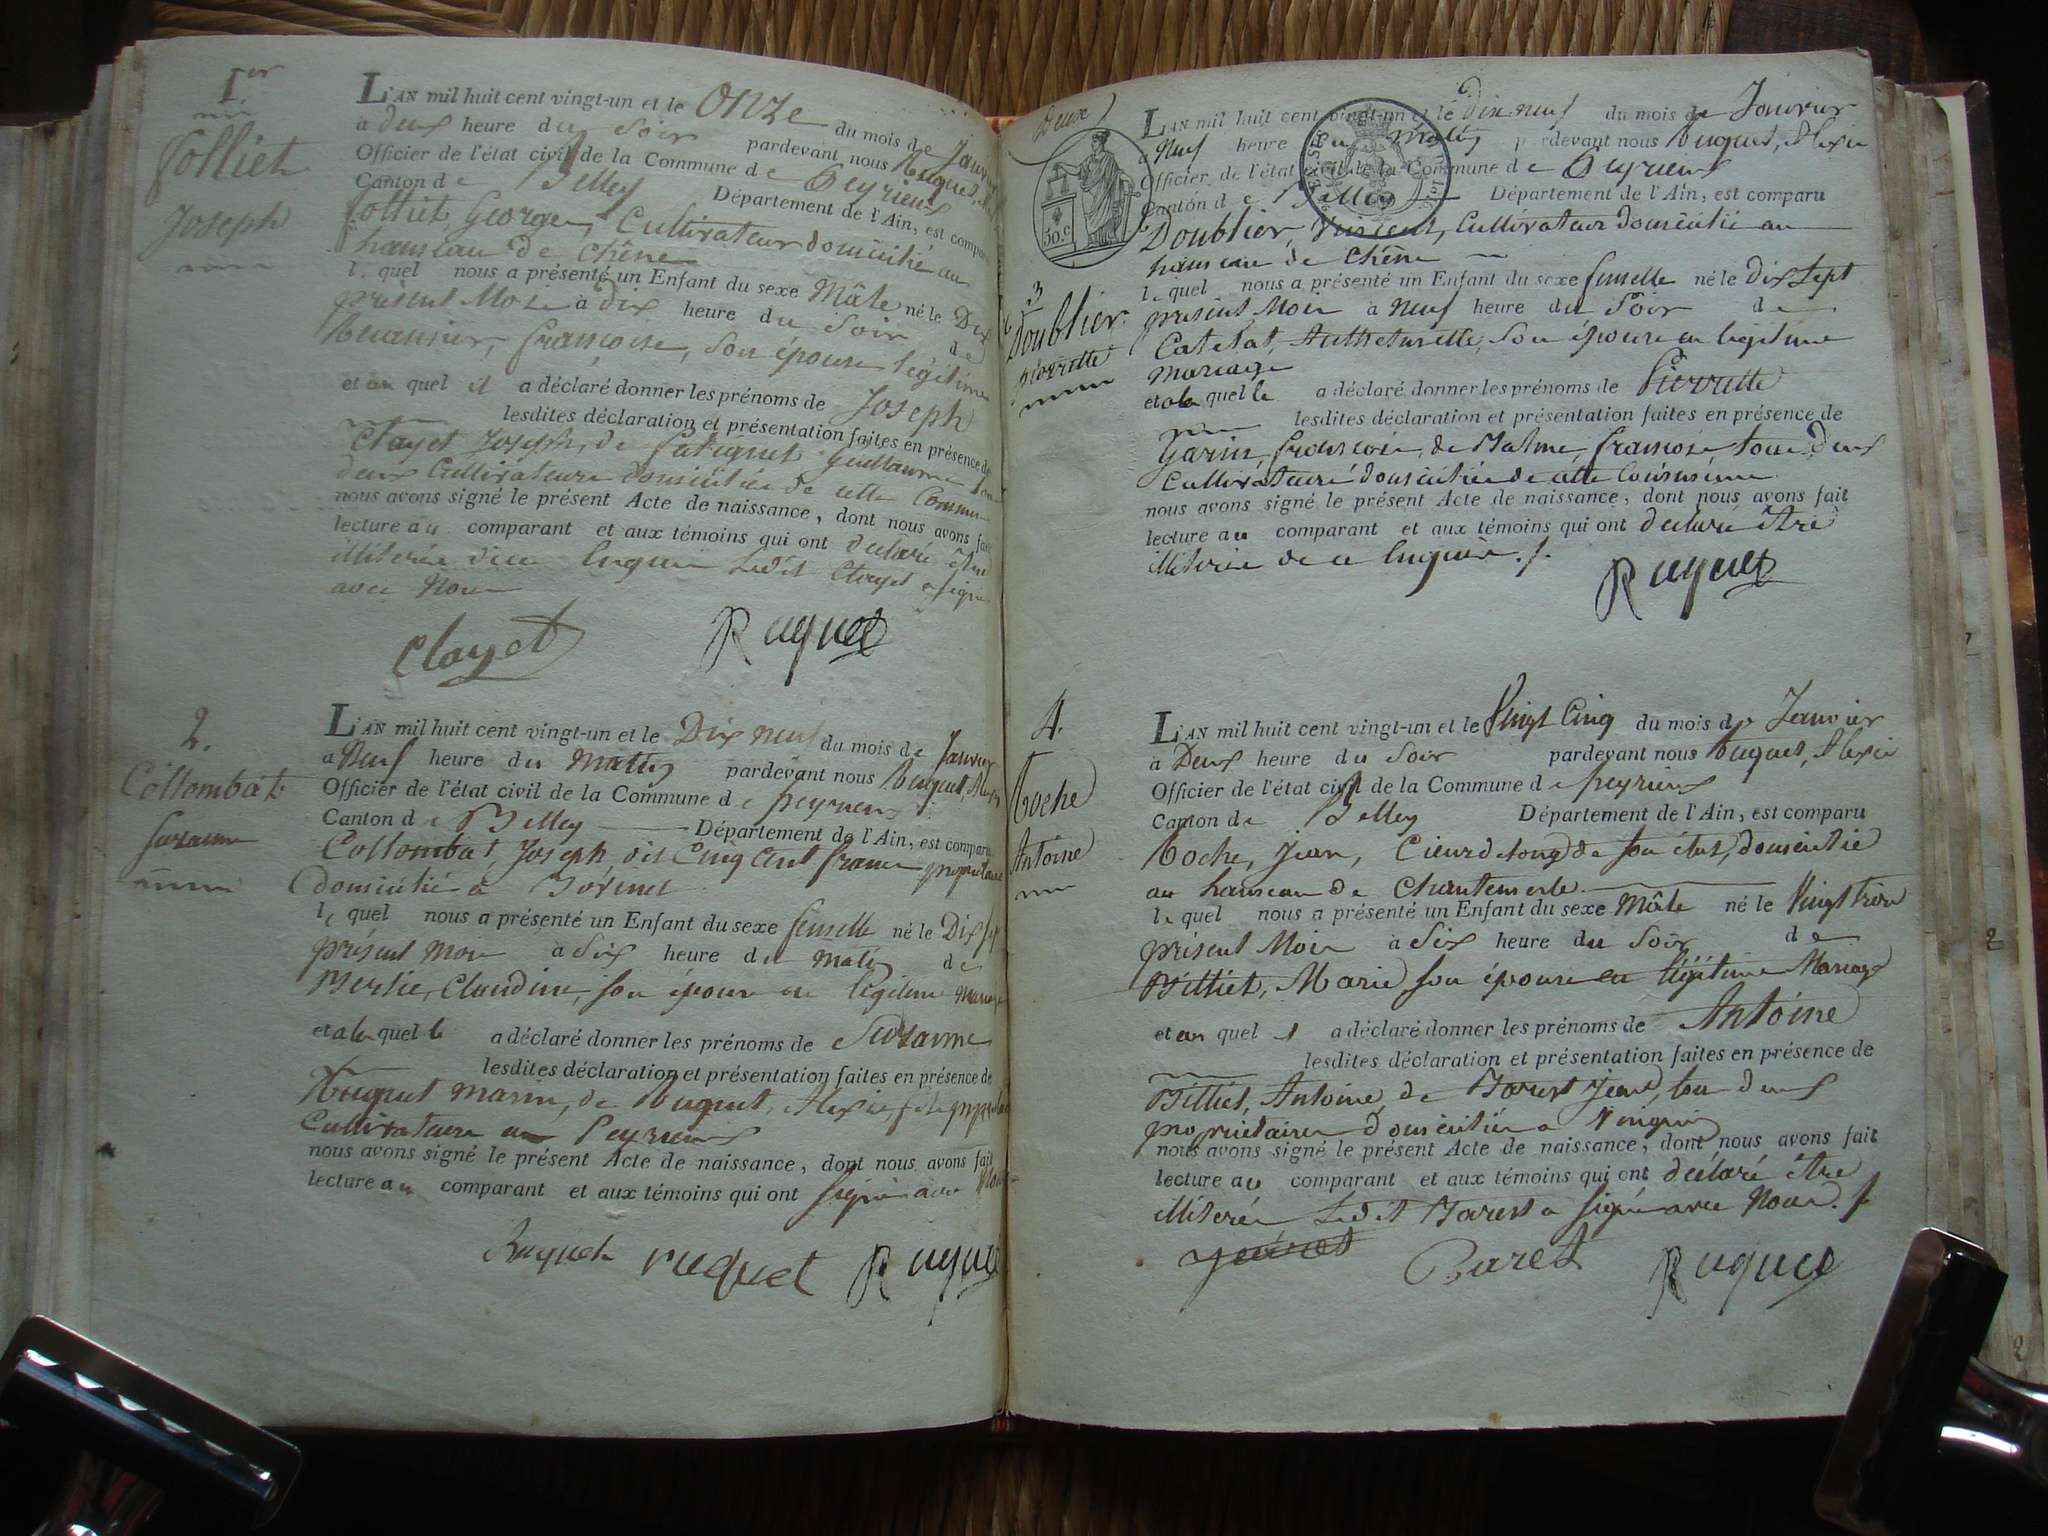 1.er
folliet
Joseph
L'AN mil huit cent vingt-un et le Onze du mois de Janvier
à deux heure du Soir pardevant nous Ruguet,
Officier de l'état civil de la Commune de Peyrieux
Canton de Belley Département de l'Ain, est comparu
folliet, George, Cultivateur domicilié au
hameau de Chêne
le quel nous a présenté un Enfant du sexe Mâle né le Dix
présent Mois à dix heure du Soir de
françoise, son épouse légitime
et au quel il a déclaré donner les prénoms de Joseph
lesdites déclaration et présentation faites en présence de
Clayet Joseph, de Guillaume
deux Cultivateurs domiciliés de cette Commune
nous avons signé le présent Acte de naissance, dont nous avons fait
lecture au comparant et aux témoins qui ont déclaré être
illiterés de ce Enquérir Ledit Clayet a signé
avec Nous
Clayet Ruguet
2.
Collombat
Suzanne
L'AN mil huit cent vingt-un et le Dix neuf du mois de Janvier
à Neuf heure du Matin pardevant nous Ruguet, Alexis
Officier de l'état civil de la Commune de peyrieux
Canton de Belley Département de l'Ain, est comparu
Collombat, Joseph, dit Cinq Cent francs propriétaire
domicilié à
le quel nous a présenté un Enfant du sexe femelle né le Dix sept
présent Mois à Six heure du matin de
Bertie, Claudine, son épouse en légitime mariage
et à la quel le a déclaré donner les prénoms de Suzanne
lesdites déclaration et présentation faites en présence de
Ruguet Marin, de Ruguet, Alexis fils
Cultivateurs Peyrieux
nous avons signé le présent Acte de naissance, dont nous avons fait
lecture au comparant et aux témoins qui ont signé avec Nous
Ruguet ruguet Ruguet
Deux
50.c
3
Doublier
pierrette
L'AN mil huit cent vingt-un et le dix neuf du mois de Janvier
à Neuf heure du Matin pardevant nous Ruguet, Alexis
Officier de l'état civil de la Commune de Peyrieux
Canton de Belley Département de l'Ain, est comparu
Doublier, Vincent, Cultivateur domicilié au
hameau de Chêne
le quel nous a présenté un Enfant du sexe femelle né le Dix Sept
présent Mois à Neuf heure du Soir de
Catelat, son épouse en légitime
Mariage
et à la quel le a déclaré donner les prénoms de Pierrette
lesdites déclaration et présentation faites en présence de
Garin françois, de françois tous deux
Cultivateurs domiciliés de cette Commune
nous avons signé le présent Acte de naissance, dont nous avons fait
lecture au comparant et aux témoins qui ont déclaré être
illiterés de ce Enquérir ./.
Ruguet
4.
Roche
Antoine
L'AN mil huit cent vingt-un et le Vingt Cinq du mois de Janvier
à Deux heure du Soir pardevant nous Ruguet, Alexis
Officier de l'état civil de la Commune de peyrieux
Canton de Belley Département de l'Ain, est comparu
Roche, Jean, de son état, domicilié
au hameau de Chantemerle
le quel nous a présenté un Enfant du sexe Mâle né le Vingt trois
présent Mois à Six heure du Soir de
Billiet, Marie, son épouse en légitime Mariage
et au quel il a déclaré donner les prénoms de Antoine
lesdites déclaration et présentation faites en présence de
Billiet, Antoine, de Baret Jean, tous deux
propriétaires domiciliés à
nous avons signé le présent Acte de naissance, dont nous avons fait
lecture au comparant et aux témoins qui ont déclaré être
illiterés Ledit Baret a signé avec Nous ./.
Baret Ruguet